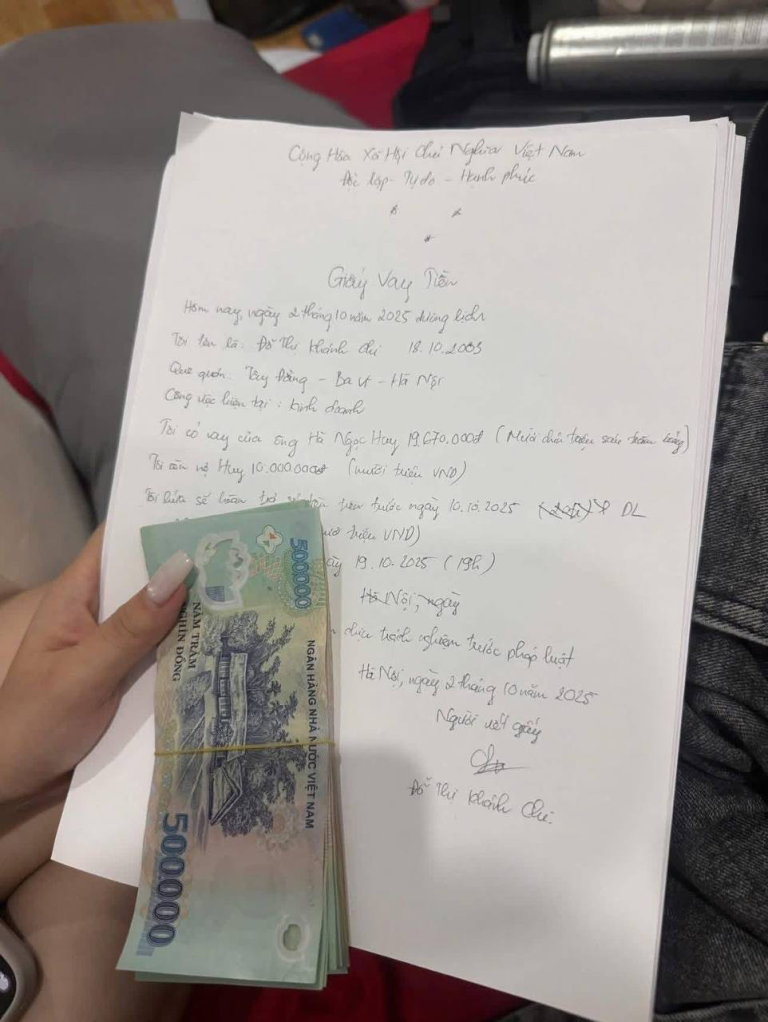 Cộng Hòa Xã Hội Chủ Nghĩa Việt Nam
Độc lập - Tự do - Hạnh phúc
* *
*
Giấy Vay Tiền
Hôm nay, ngày 2 tháng 10 năm 2025 dương lịch
Tôi tên là: Đỗ Thị Khánh Chi 18.10.2003
Quê quán: Tây Đằng - Ba Vì - Hà Nội
Công việc hiện tại: kinh doanh
Tôi có vay của ông Hà Ngọc Huy 19.670.000đ (Mười chín triệu sáu trăm bảy)
Tôi còn nợ Huy 10.000.000đ (mười triệu VND)
Tôi hứa sẽ hoàn trả tiền trước ngày 10.10.2025 DL
triệu VND)
ngày 19.10.2025 (19h)
Hà Nội, ngày
chịu trách nghiệm trước pháp luật
Hà Nội, ngày 2 tháng 10 năm 2025
Người viết giấy
Đỗ Thị Khánh Chi.
500000
NĂM TRĂM
NGHÌN ĐỒNG
NGÂN HÀNG NHÀ NƯỚC VIỆT NAM
500000